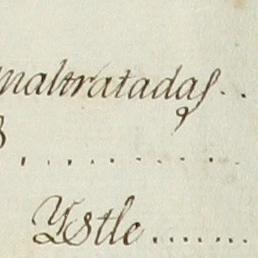 maltratadas..
........
Ystle.......